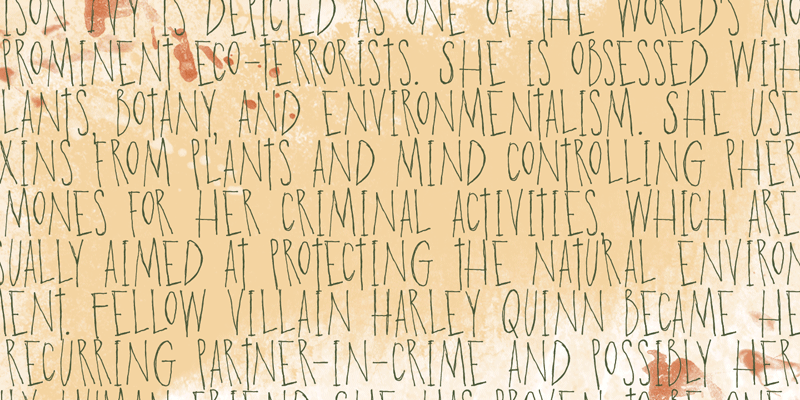 ISON IVY IS DEPICTED AS ONE OF THE WORLD'S MO
PROMINENT ECO-TERRORISTS. SHE IS OBSESSED WITH
LANTS, BOTANY, AND ENVIRONMENTALISM. SHE USE
XINS FROM PLANTS AND MIND CONTROLLING PHER
MONES FOR HER CRIMINAL ACTIVITIES, WHICH ARE
SUALLY AIMED AT PROTECTING THE NATURAL ENVIRON
MENT. FELLOW VILLAIN HARLEY QUINN BECAME HE
RECURRING PARTNER-IN-CRIME AND POSSIBLY HER
LY HUMAN FRIEND SHE HAS PROVEN TO BE ONE